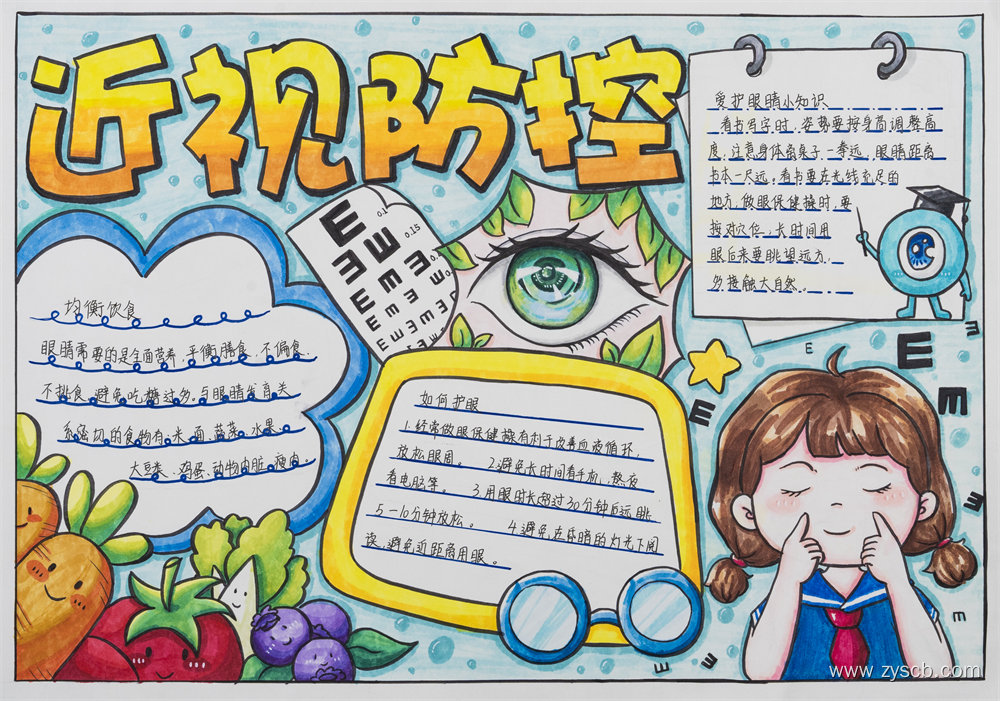 近视防控
爱护眼睛小知识
看书写字时,姿势要按身高调整高
度,注意身体离桌子一拳远,眼睛距离
书本一尺远。看书要在光线充足的
地方,做眼保健操时,要
按对穴位,长时间用
眼后来要眺望远方,
多接触大自然。
E
0.1
0.15
均衡饮食
眼睛需要的是全面营养,平衡膳食,不偏食,
不挑食,避免吃糖过多。与眼睛发育关
系密切的食物有:米、面、蔬菜、水果、
大豆类、鸡蛋、动物内脏、瘦肉。
如何护眼
1.经常做眼保健操有利于改善血液循环,
放松眼周。 2.避免长时间看手机、熬夜
看电脑等。 3.用眼时长超过30分钟后远眺
5-10分钟放松。 4.避免在昏暗的灯光下阅
读,避免近距离用眼。
www.zyscb.com